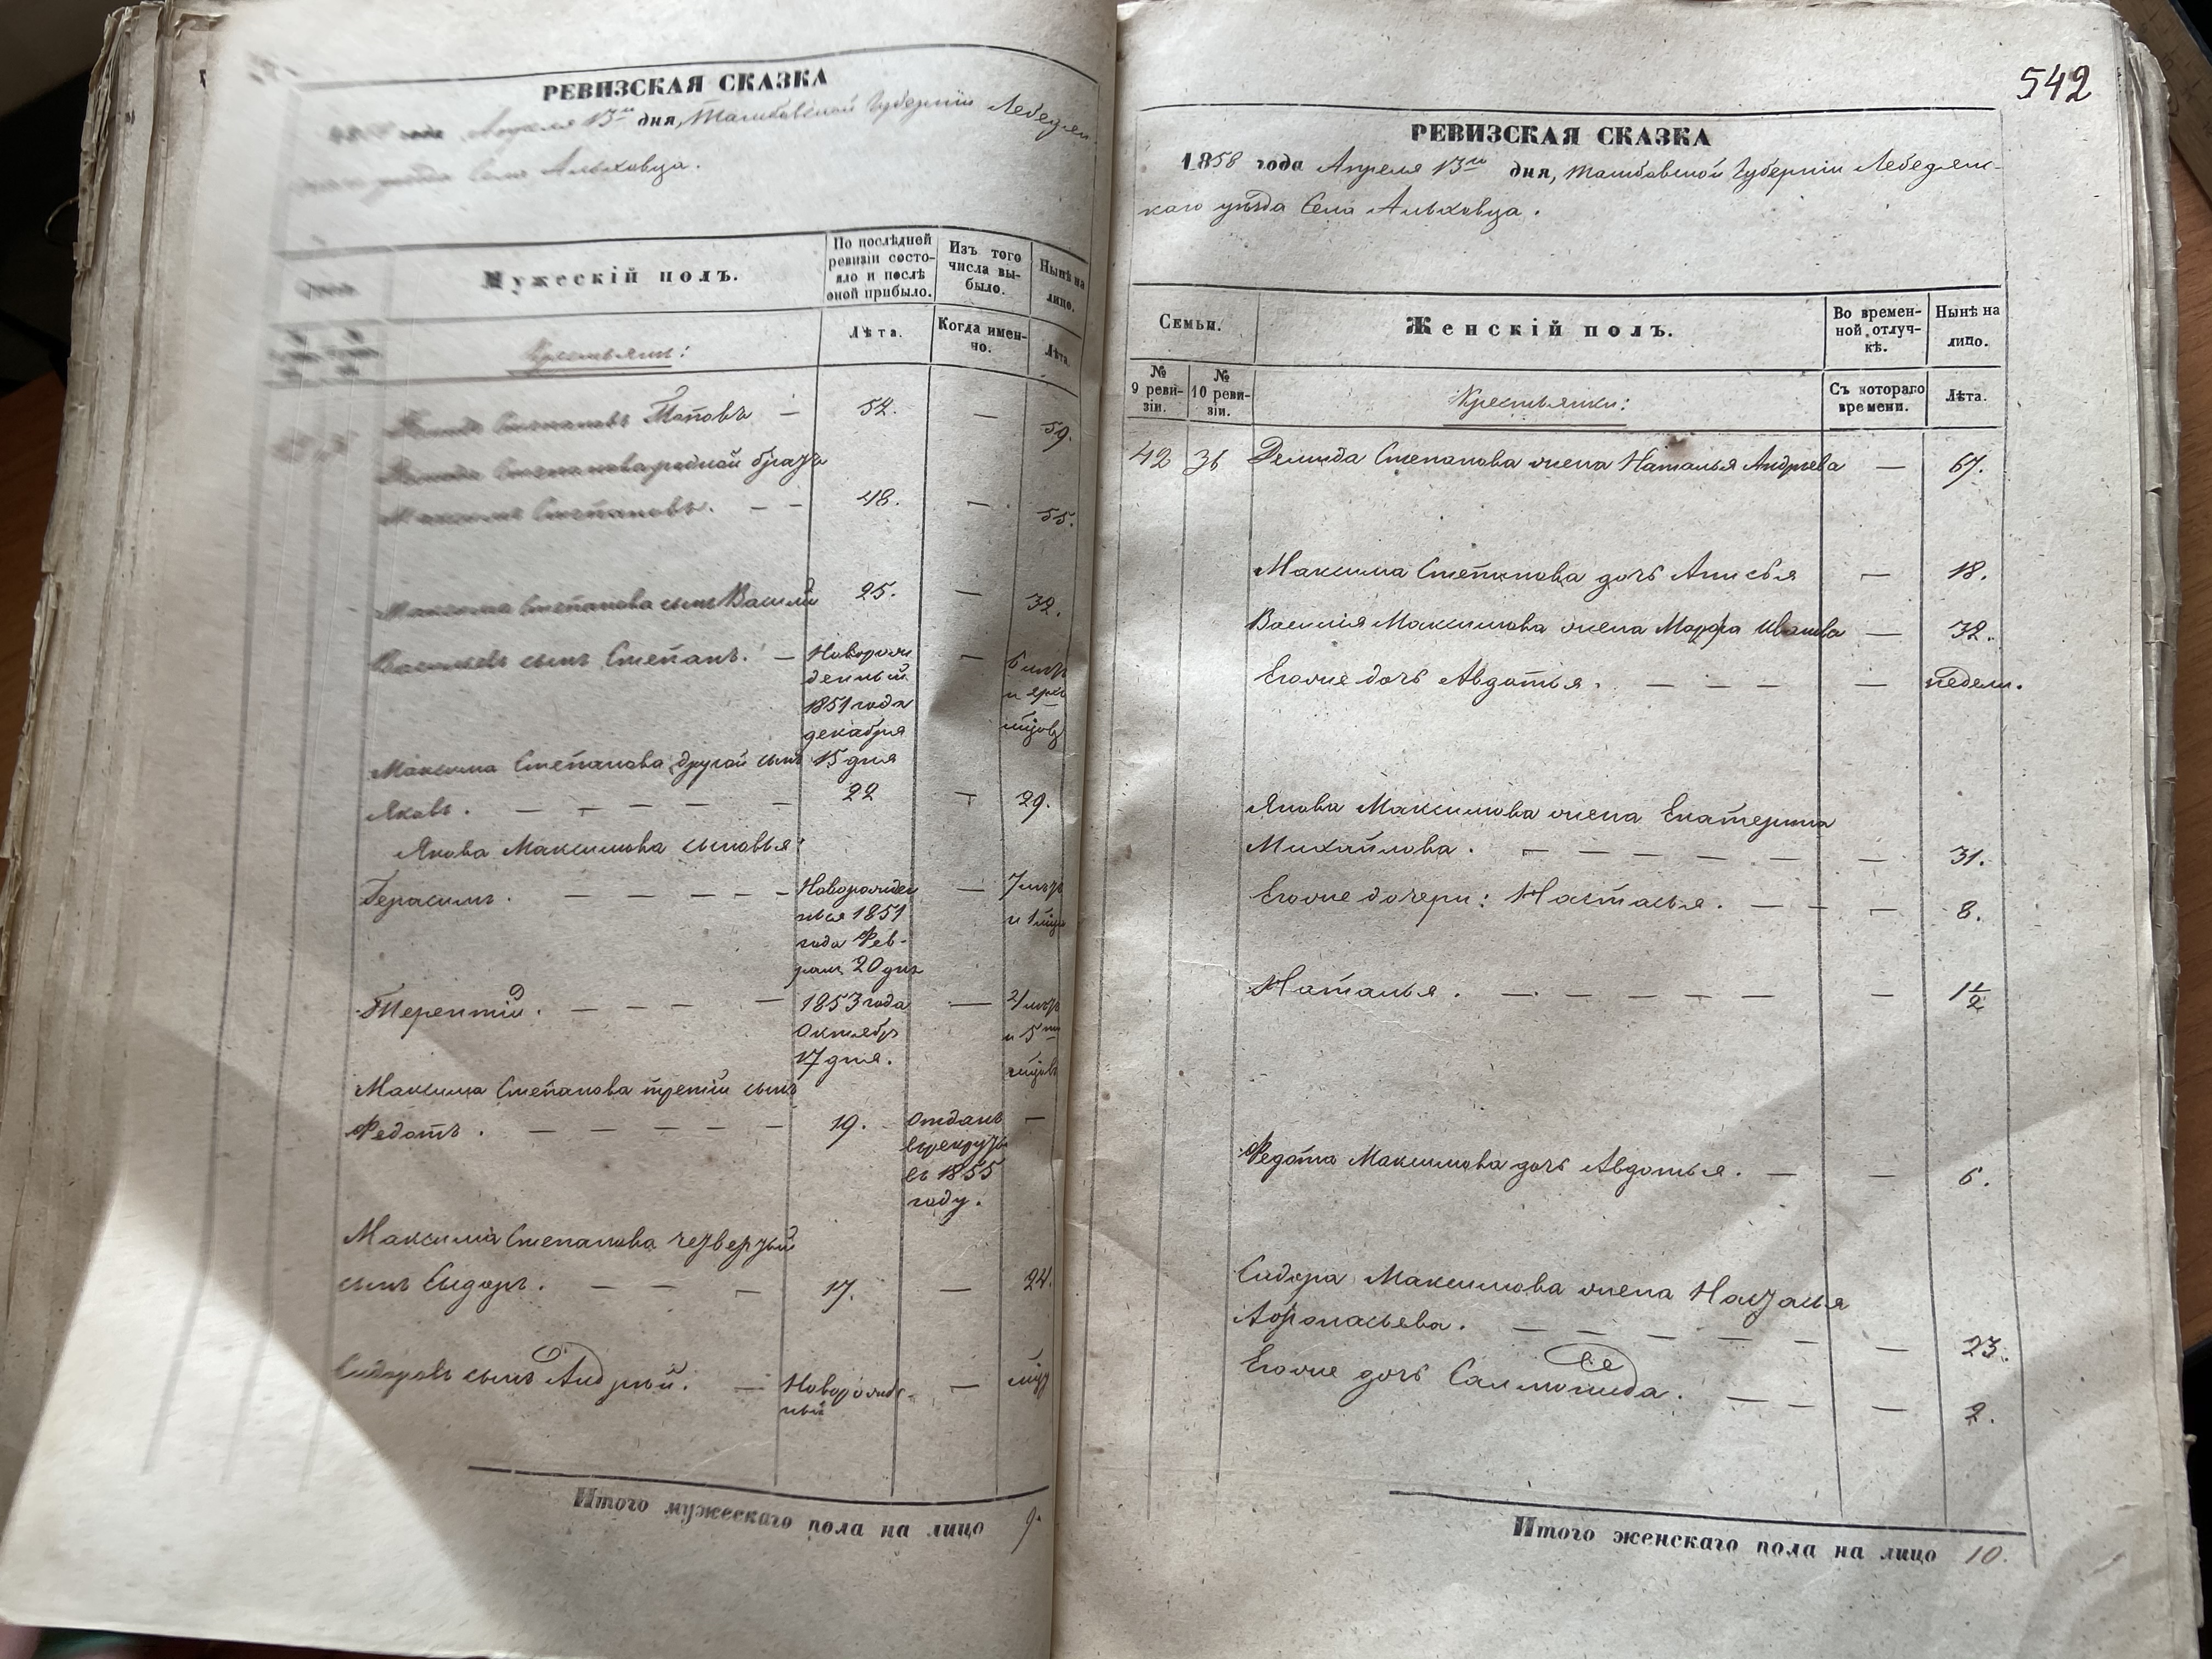 РЕВИЗСКАЯ СКАЗКА
года Апреля 13го дня, Тамбовской Губерніи Лебедян
уѣзда Села Ольховца.
Мужескій полъ.
По послѣдней ревизіи состо-
яло и послѣ
оной прибыло.
Изъ того
числа вы-
было.
Нынѣ на
лицо.
Лѣта.
Когда имен-
но.
Лѣта.
Крестьяне:
Демидъ Степановъ Поповъ — 52. — 59.
Демида Степанова родной братъ
Максимъ Степановъ. — — 48. — 55.
Максима Степанова сынъ Василій 25. — 32.
Васильевъ сынъ Степанъ. — Новорож
денный
1851 года
декабря
15 дня
— 6 лѣтъ
Максима Степанова другой сынъ
Яковъ. — — — — — 22 — 29.
Якова Максимова сыновья:
Герасимъ. — — — — — Новорожден
ныя 1851
года Фев-
рал 20 дня
— 7 лѣтъ
и 1 мѣся
Терентій. — — — — 1853 года
Октября
17 дня.
— 4 лѣтъ
и 5ть
мѣсяцовъ
Максима Степанова третій сынъ
Федотъ. — — — — — 19. Отданъ
въ рекруты
въ 1855
году.
—
Максима Степанова четвертый
сынъ Сидоръ. — — — 17. — 24.
Сидоровъ сынъ Андрей. — Новорожде-
ный
—
Итого мужескаго пола на лицо 9.
542
РЕВИЗСКАЯ СКАЗКА
1858 года Апреля 13го дня, Тамбовской Губерніи Лебедянс-
каго уѣзда Села Ольховца.
Семьи.
Женскій полъ.
Во времен-
ной отлуч-
кѣ.
Нынѣ на
лицо.
№
9 реви-
зіи.
№
10 реви-
зіи.
Крестьянки:
Съ котораго
времени.
Лѣта.
42 36 Демида Степанова жена Наталья Андреева — 67.
Максима Степанова дочь Анисья — 18.
Василія Максимова жена Марфа Иванова — 32.
Егоже дочь Авдотья. — — — — недели.
Якова Максимова жена Екатерина
Михайлова. — — — — — — — 31.
Егоже дочери: Настасья. — — — 8.
Наталья. — — — — — — 1½
Федота Максимова дочь Авдотья. — — 6.
Сидора Максимова жена Настасья
Афонасьева. — — — — — — 23.
Егоже дочь Саломонида. — — — 2.
Итого женскаго пола на лицо 10.